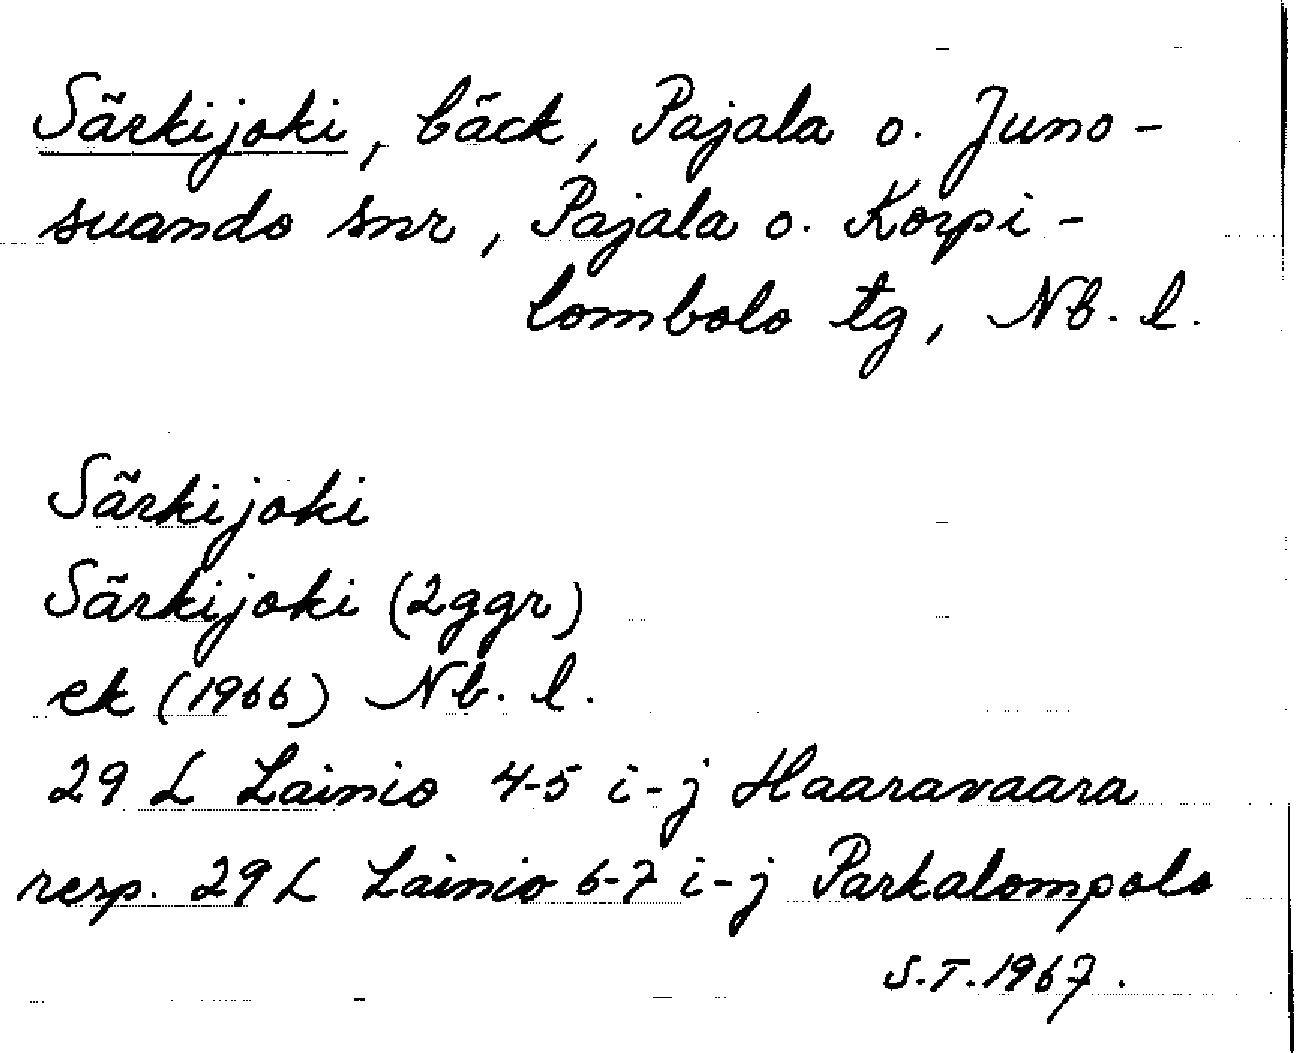 Särkijoki, bäck, Pajala o. Juno-
suando snr, Pajala o. Korpi-
lombolo tg, Nb. l.
Särkijoki
Särkijoki (2ggr)
ek (1966) Nb. l.
29 L Lainio 4-5 i-j Haaravaara
resp. 29 L Lainio 6-7 i-j Parkalompolo
S.T. 1967.